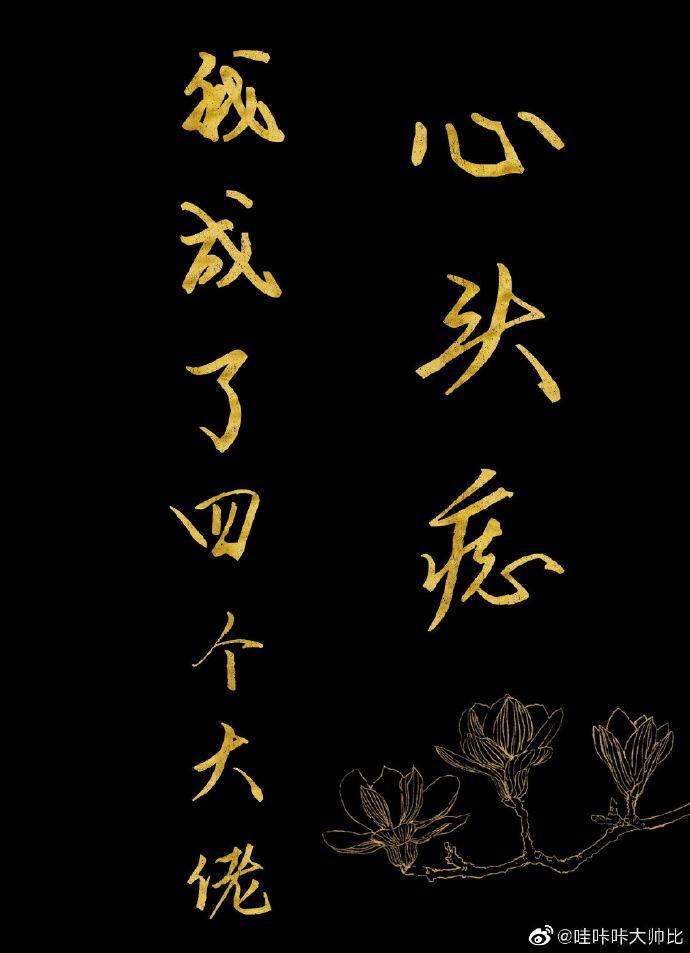 我成了四个大佬
心头痣
@哇咔咔大帅比